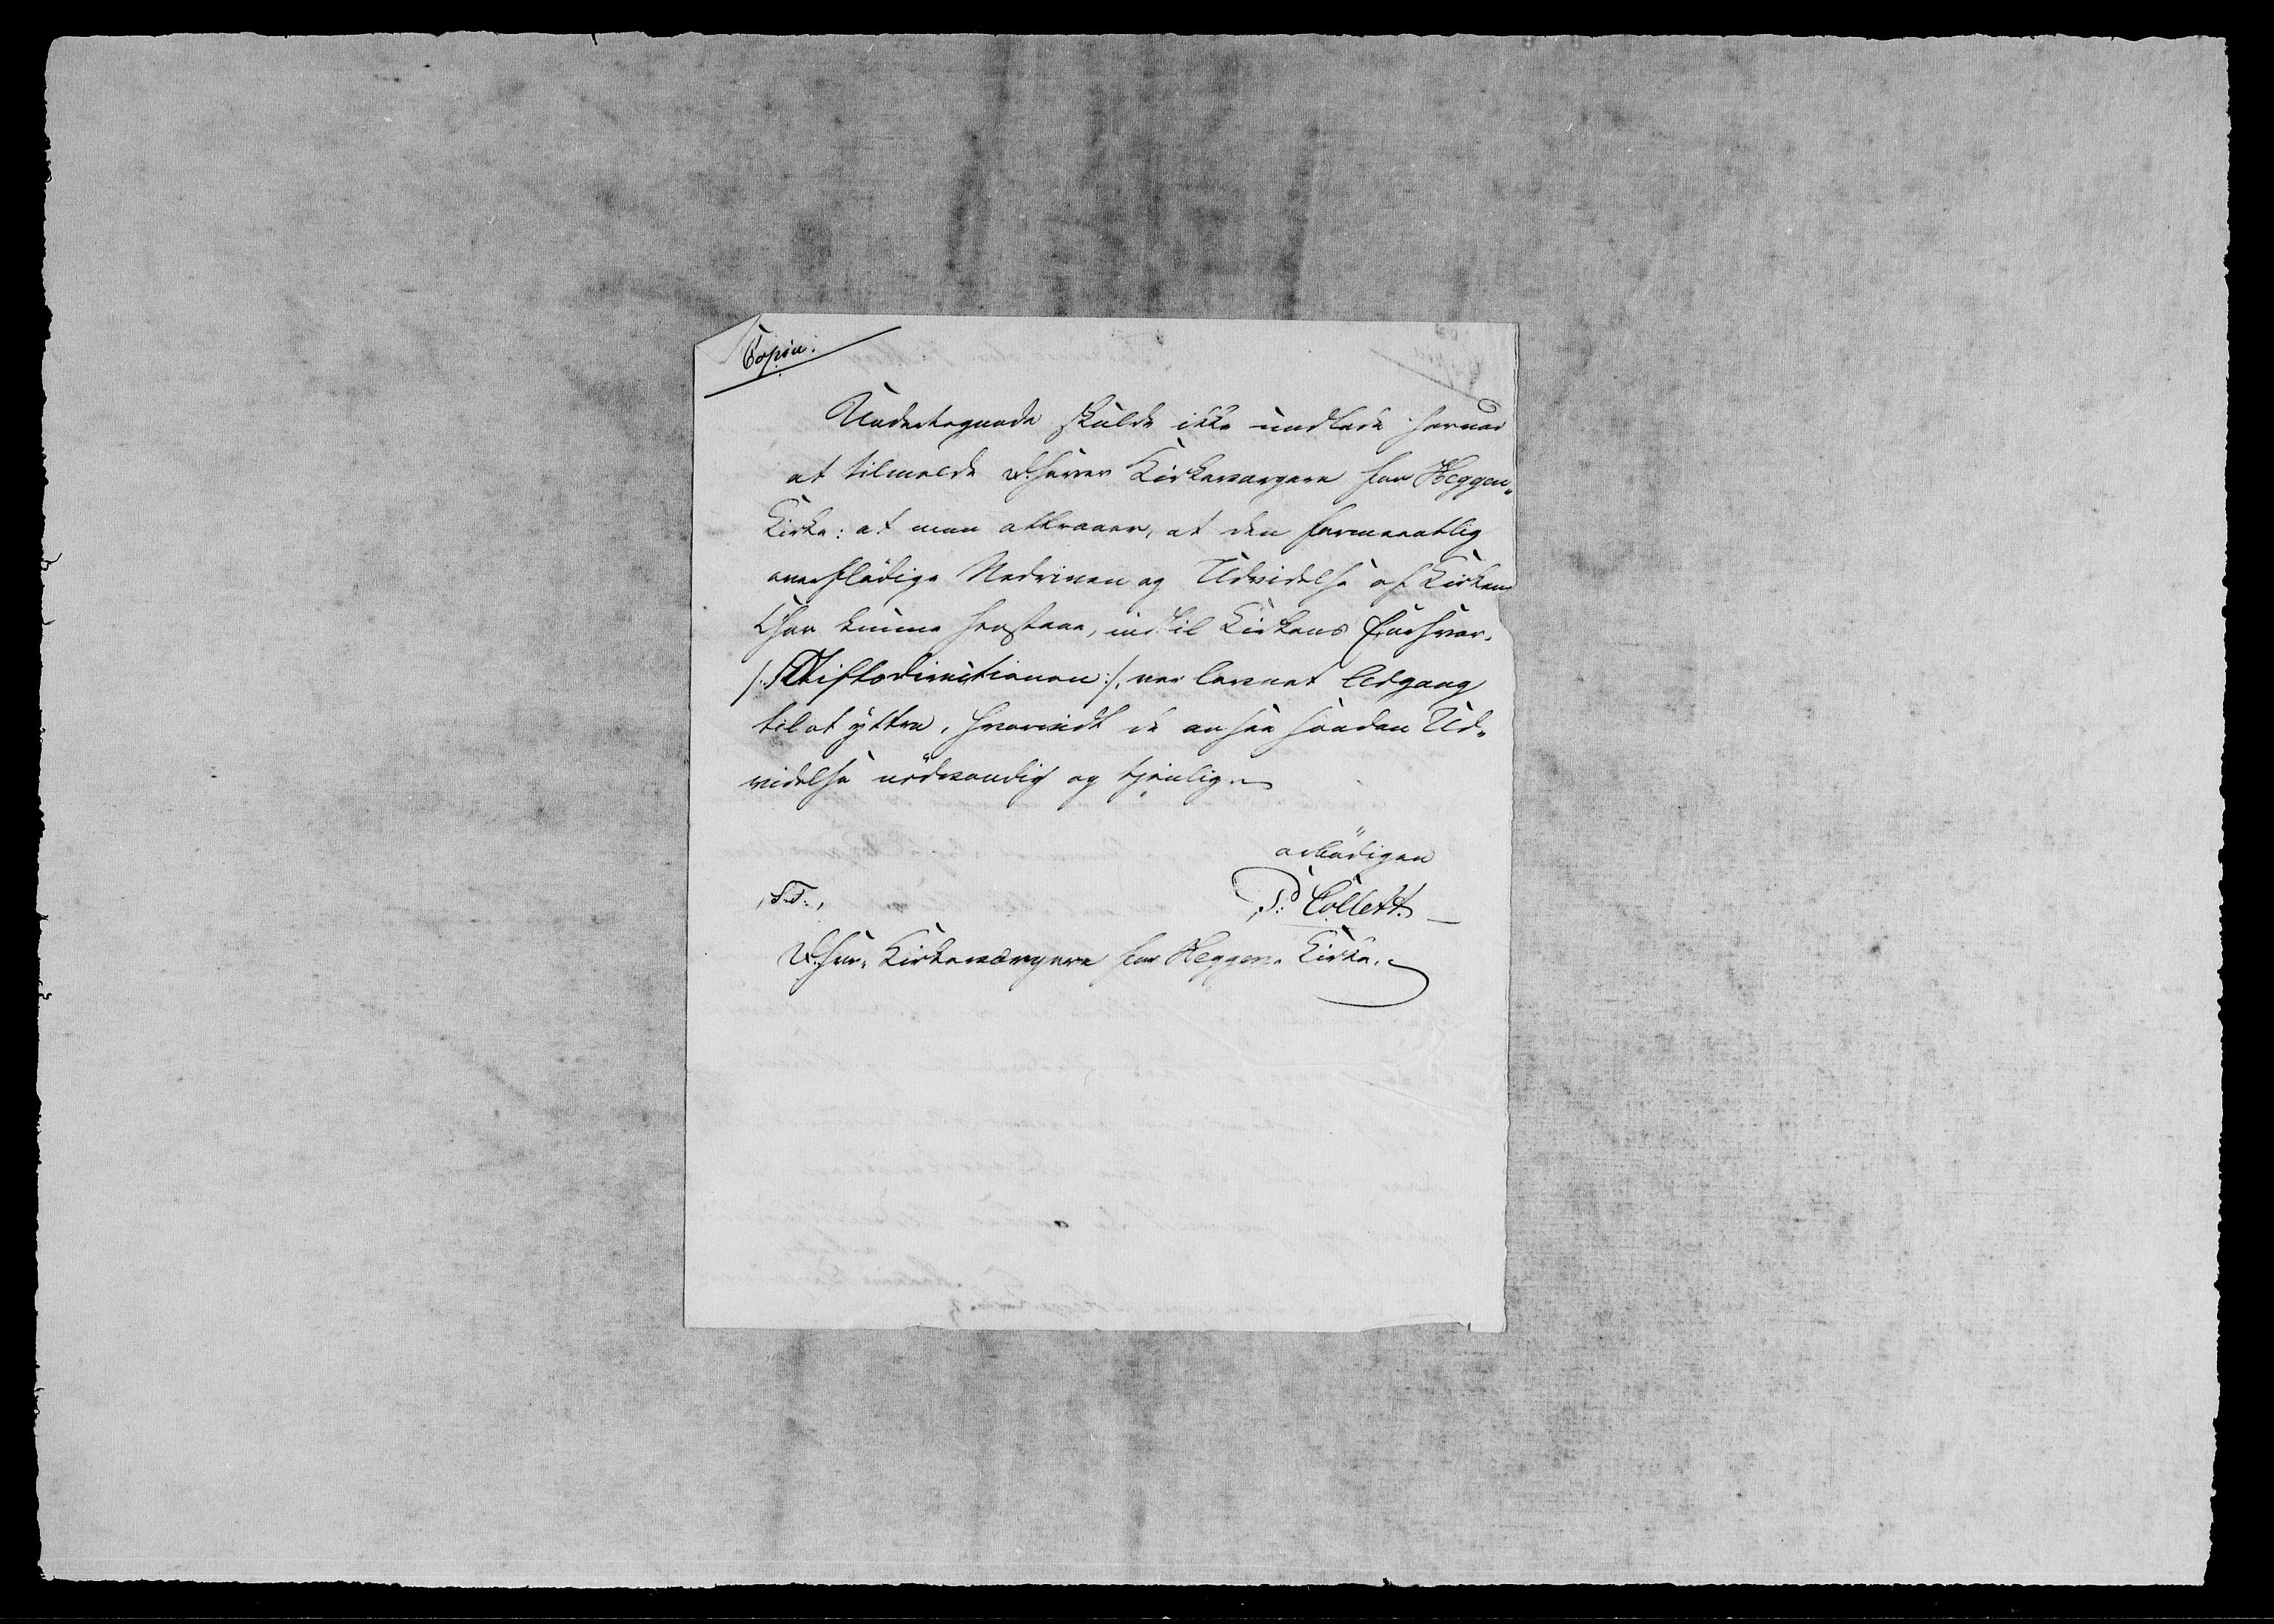 Copia.
Undertegnede skulde ikke undlade herved
at tilmelde D'Herrer Kirkeværgere for Heggen„
Kirke: at man attraaer, at den formeentlig
overflødige Nedriven og Udvidelse af Kirkens
Choer kunne henstaae, indtil Kirkens Forsvar.
/: Stiftsdirectionen :/, var levnet Adgang
til at yttre, hvorvidt de ansee saadan Ud„
videlse nödvendig og tjenlig.
ærbödigen
S. T.,
P. Collett.
D'Herr. Kirkeværgere for Heggens Kirke.